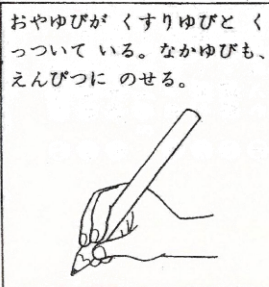 おやゆびが くすりゆびと く
っついて いる。なかゆびも、
えんぴつに のせる。